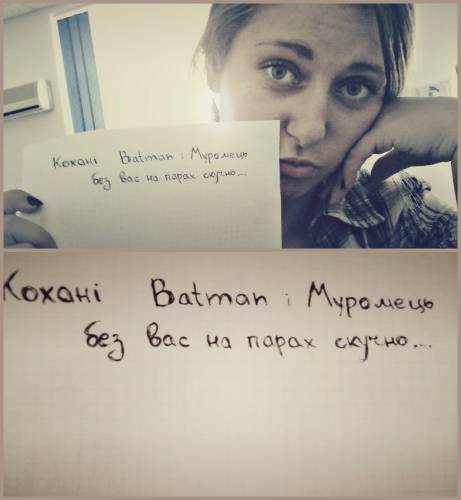 Кохані Batman і Муромець
без вас на парах скучно...
Кохані Batman і Муромець
без вас на парах скучно...